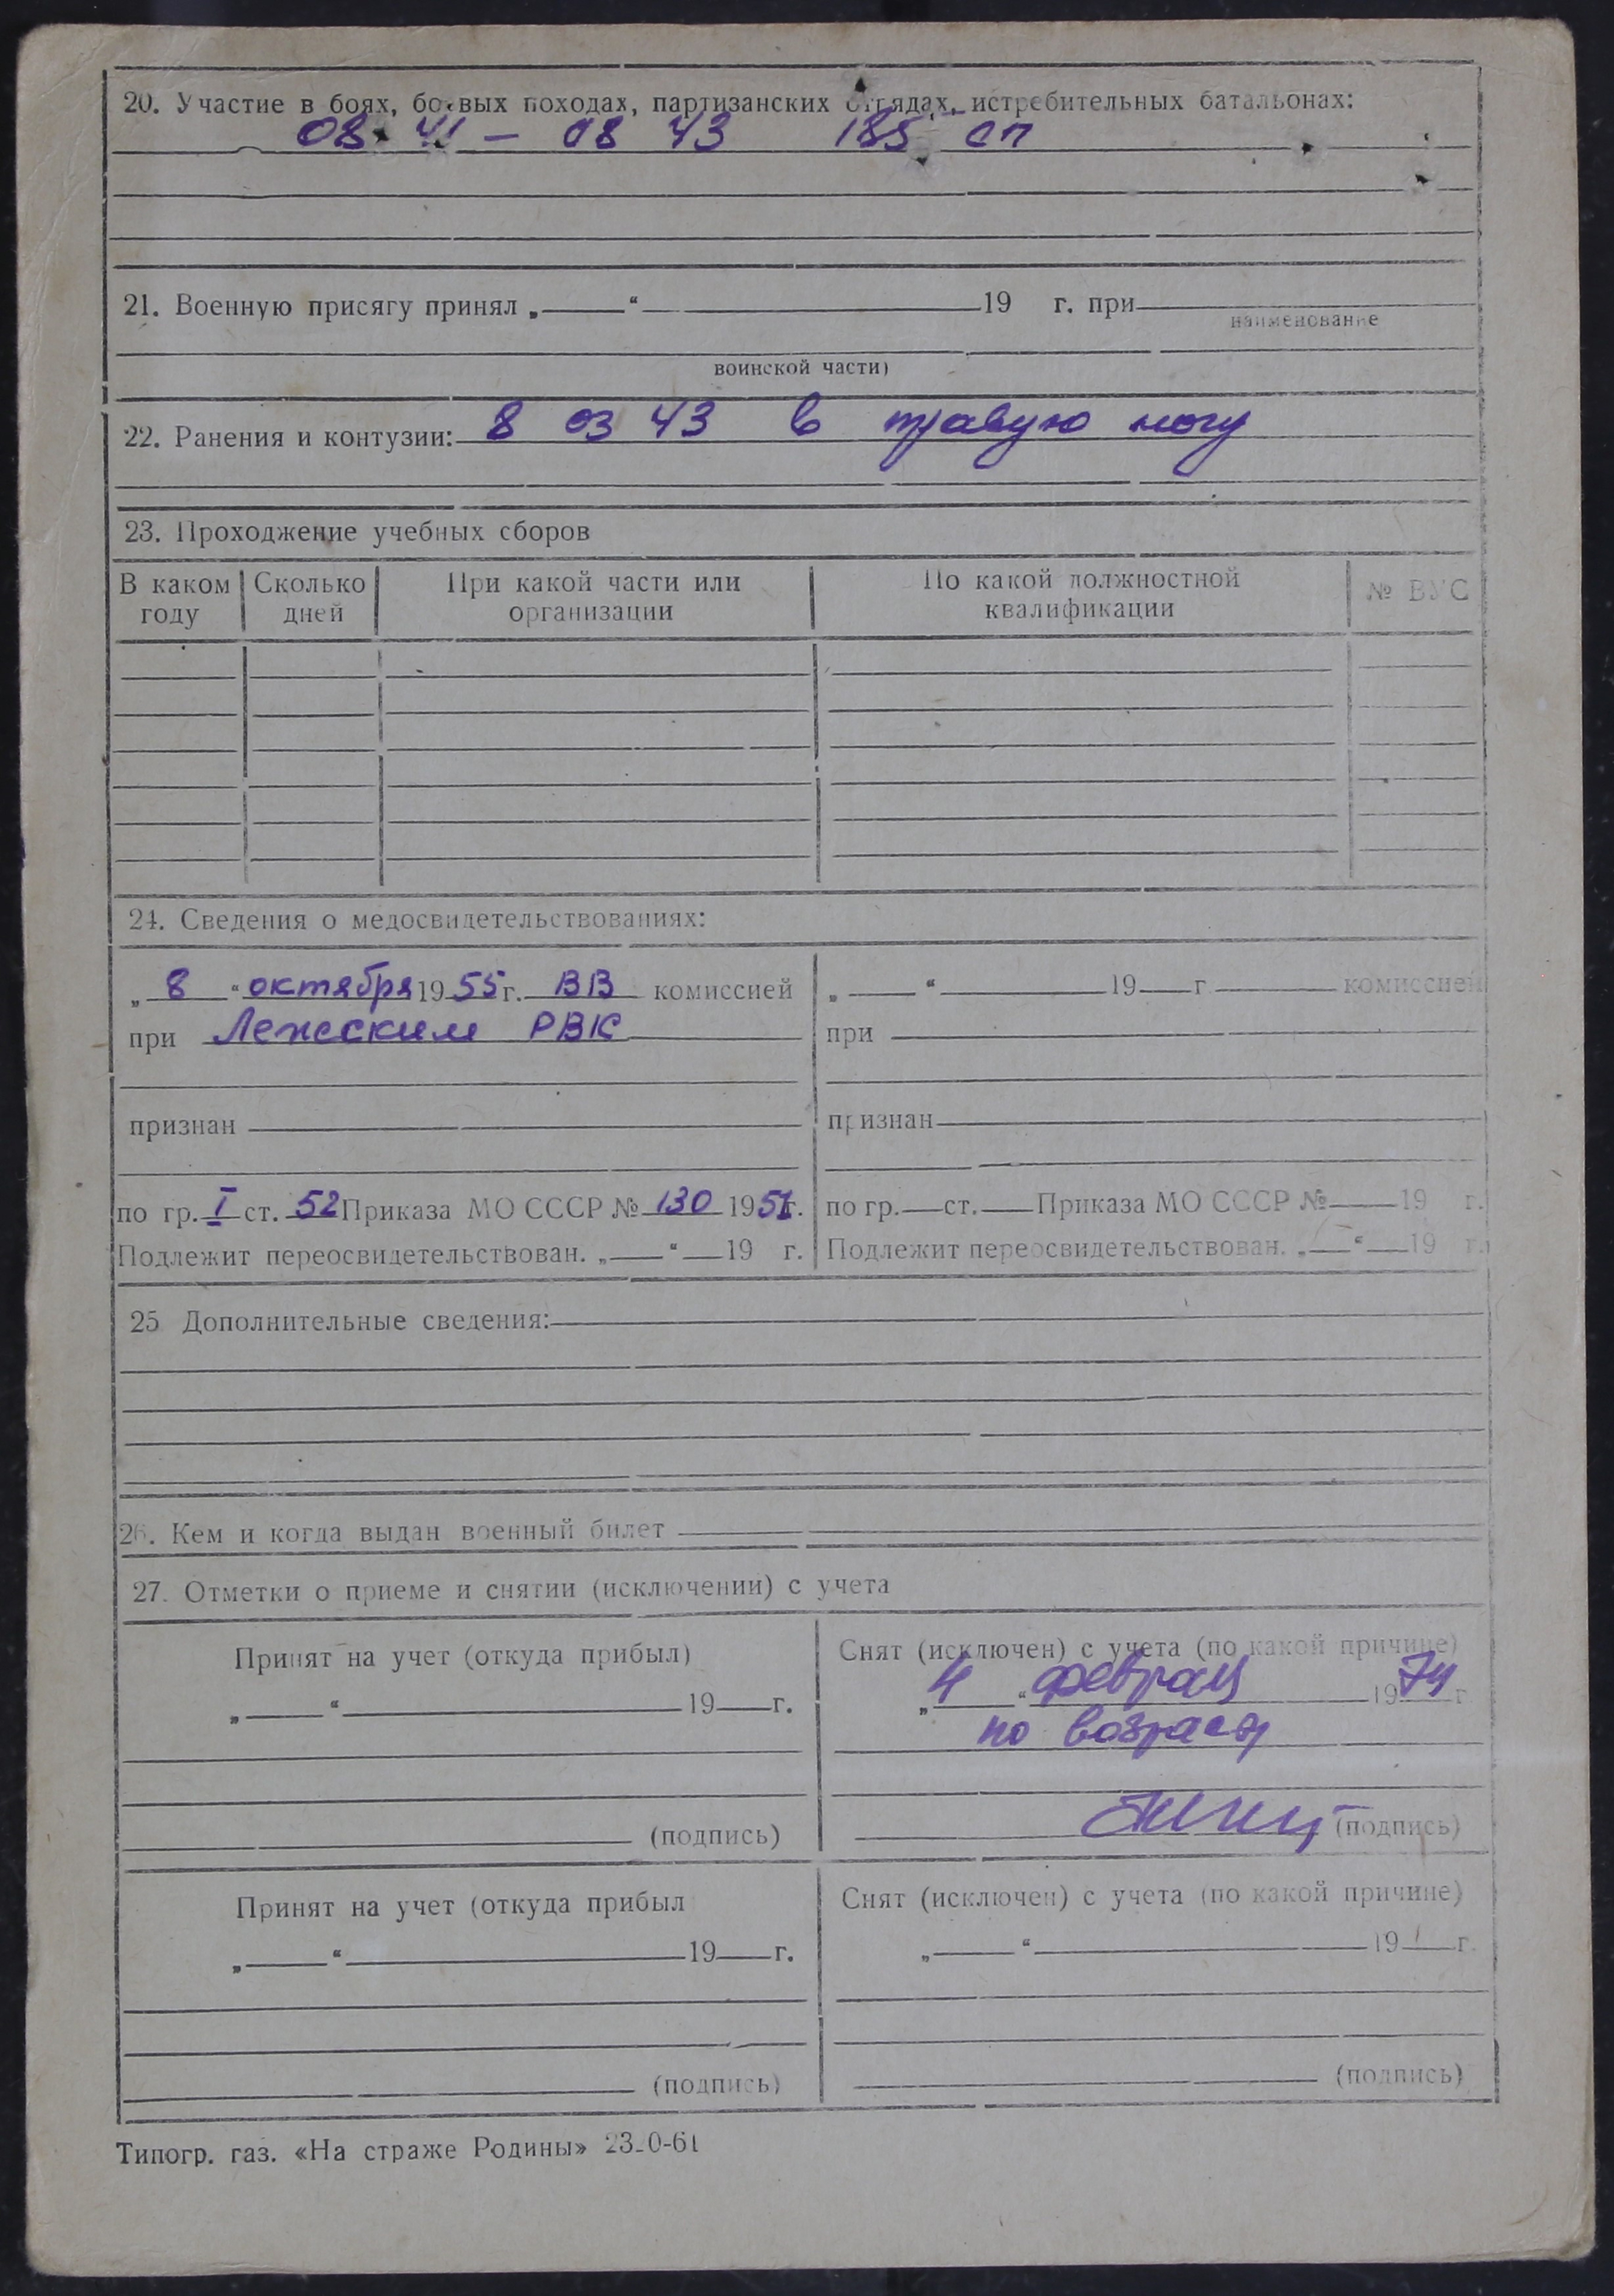 20. Участие в боях, боевых походах, партизанских отрядах, истребительных батальонах:
08 41 — 08 43 185 сп
21. Военную присягу принял „ “ 19 г. при
наименование
воинской части)
22. Ранения и контузии: 8 03 43 в правую ногу
23. Прохождение учебных сборов
В каком году Сколько дней При какой части или организации По какой должностной квалификации № ВУС
24. Сведения о медосвидетельствованиях:
„ 8 “ октября 19 55 г. ВВ комиссией „ “ 19 г. комиссией
при Лежским РВК при
признан признан
по гр. I ст. 52 Приказа МО СССР № 130 1951 г. по гр. ст. Приказа МО СССР № 19 г.
Подлежит переосвидетельствован. „ “ 19 г. Подлежит переосвидетельствован. „ “ 19 г.
25 Дополнительные сведения:
26. Кем и когда выдан военный билет
27. Отметки о приеме и снятии (исключении) с учета
Принят на учет (откуда прибыл) Снят (исключен) с учета (по какой причине)
„ “ 19 г. „ 4 “ февраля 19 74 г.
по возрасту
(подпись) (подпись)
Принят на учет (откуда прибыл Снят (исключен) с учета (по какой причине)
„ “ 19 г. „ “ 19 г.
(подпись) (подпись)
Типогр. газ. «На страже Родины»